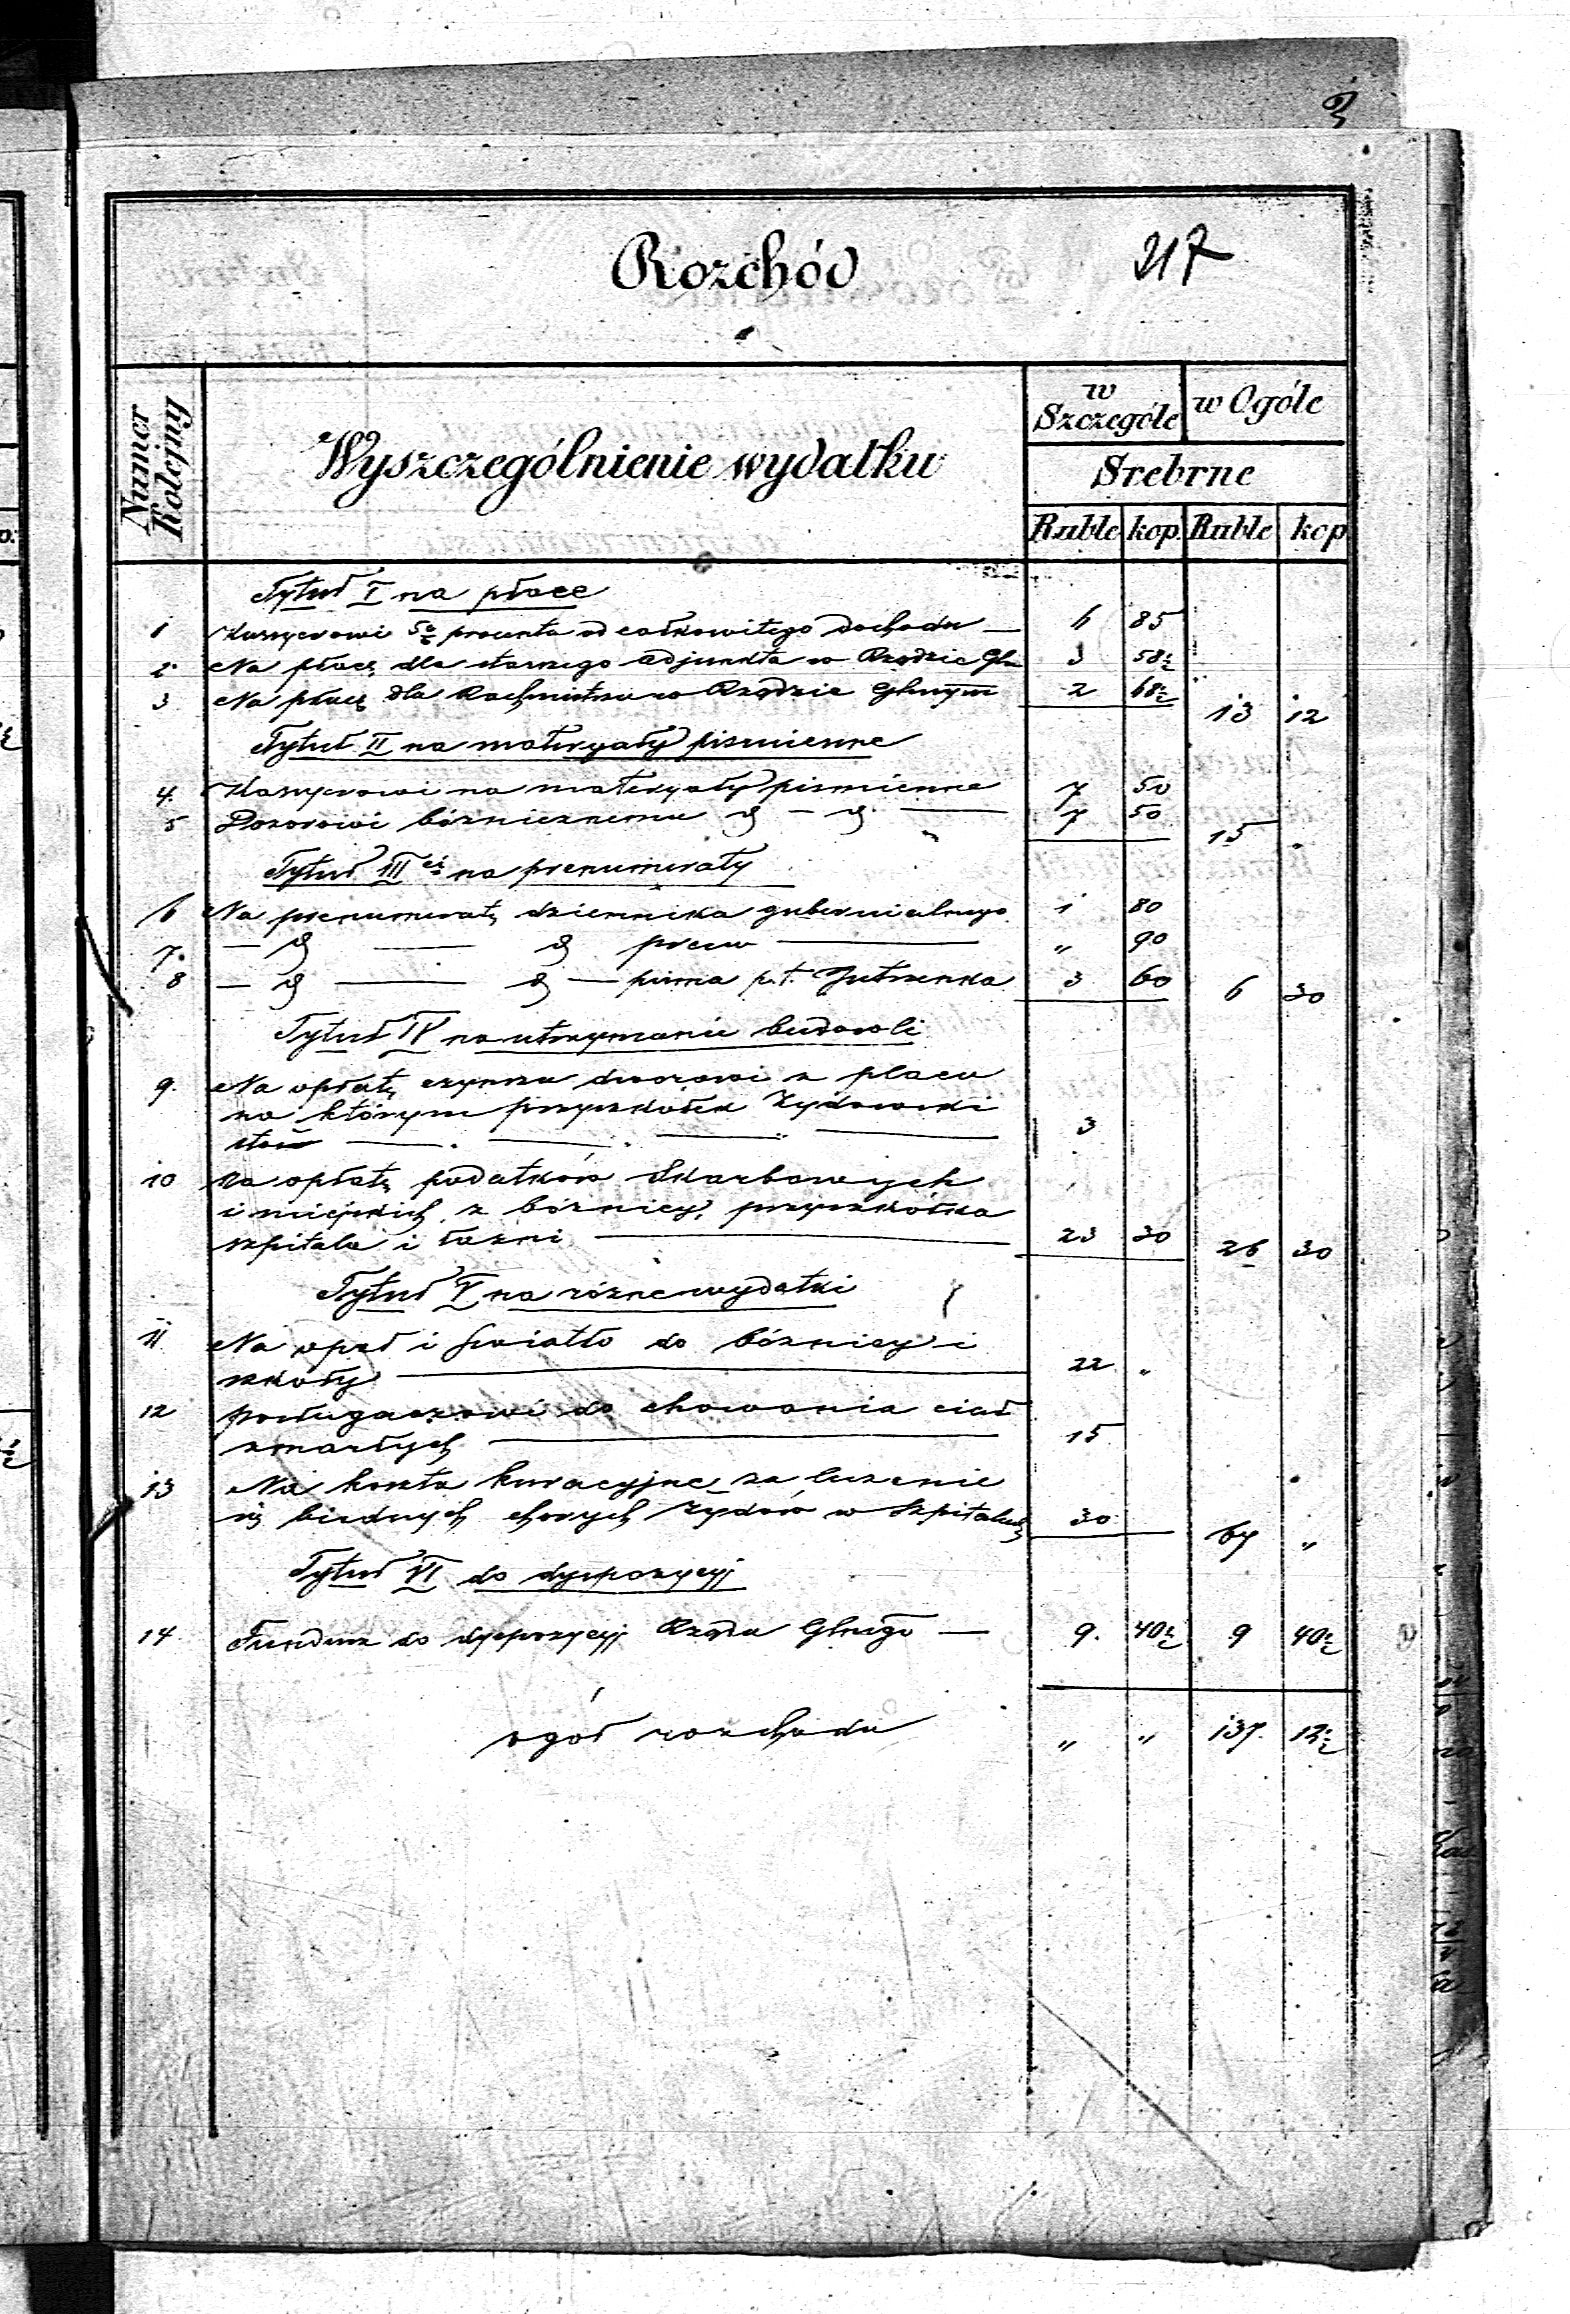 3
Rozchód 217
Numer Kolejny
Wyszczególnienie wydatku
w Szczególe w Ogóle
Srebrne
Ruble kop. Ruble kop
Tytuł I na płace
1 Kassyerowi 5% procentu od całkowitego dochodu — 6 85
2 Na płacę dla starszego adjunkta w Rządzie Gln 3 58½
3 Na płacę dla Rachmistrza w Rządzie Glnym 2 68½ 13 12
Tytuł II na materyały piśmienne
4. Kassyerowi na materyały piśmienne 7 50
5 Dozorowi bóżnicznemu d — d. — 7 50 15 .
Tytuł III ci na prenumeraty
6 Na prenumeratę dziennika gubernialnego 1 80
7. — d — d praw — " 90
8 — d — d — pisma p.t. Jutrzenka 3 60 6 30
Tytuł IV na utrzymanie budowli
9. Na opłatę czynszu dworowi z placu
na którym przyszkółek Żydowski
stoi — 3
10 Na opłatę podatków Skarbowych
i miejskich z bóżnicy, przyszkółka
szpitala i łaźni — 23 30 26 30
Tytuł V na różne wydatki
11 Na opał i światło do bóżnicy i
szkoły — 22 "
12 posługaczowi do chowania ciał
zmarłych — 15
13 Na koszta kuracyjne za leczenie
się biednych chorych żydów w Szpitalach 30 67 "
Tytuł VI do dyspozycyj
14 Fundusz do dyspozycyj Rządu Glnego — 9. 40½ 9 40½
ogół rozchodu " " 137. 12½